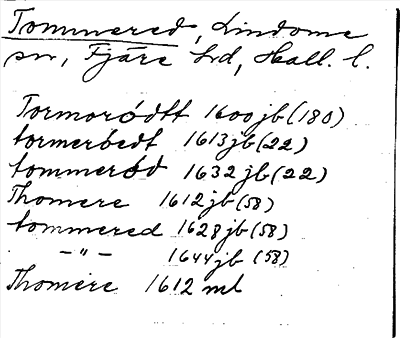 Tommered, Lindome
sn, Fjäre hd, Hall. l.
Tormorödtt 1600 jb (180)
tormerbedt 1613 jb (22)
tommerød 1632 jb (22)
Thomere 1612 jb (58)
tommered 1628 jb (58)
—"— 1644 jb (58)
Thomere 1612 ml